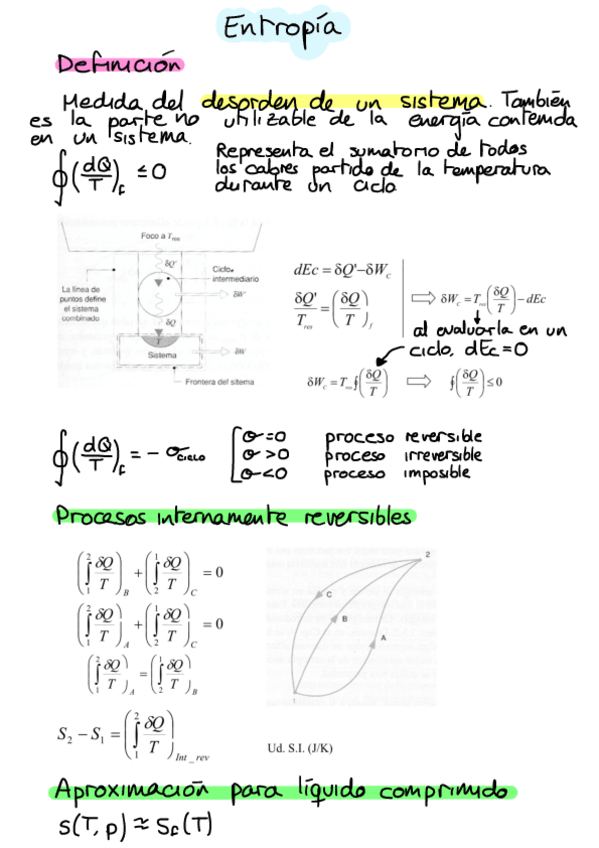 Entropía
Definición
Medida del desorden de un sistema. También
es la parte no utilizable de la energía contenida
en un sistema.
∮(dQ/T)_c ≤ 0
Representa el sumatorio de todos
los calores partido de la temperatura
durante un ciclo
Foco a T_res
δQ'
Ciclo
intermediario
La línea de
puntos define
el sistema
combinado
δW'
δQ
T
Sistema
δW
Frontera del sitema
dEc = δQ'−δW_c
δQ'/T_res = (δQ/T)_f
⇒ δW_c = T_res(δQ/T) − dEc
al evaluarla en un
ciclo, dEc=0
δW_c = T_res∮(δQ/T) ⇒ ∮(δQ/T) ≤ 0
∮(dQ/T)_c = − σ_ciclo
σ=0 proceso reversible
σ>0 proceso irreversible
σ<0 proceso imposible
Procesos internamente reversibles
(∫₁² δQ/T)_B + (∫₂¹ δQ/T)_C = 0
(∫₁² δQ/T)_A + (∫₂¹ δQ/T)_C = 0
(∫₁² δQ/T)_A = (∫₂¹ δQ/T)_B
2
C
B
A
1
S₂ − S₁ = (∫₁² δQ/T)_Int_rev
Ud. S.I. (J/K)
Aproximación para líquido comprimido
s(T, p) ≈ s_f(T)